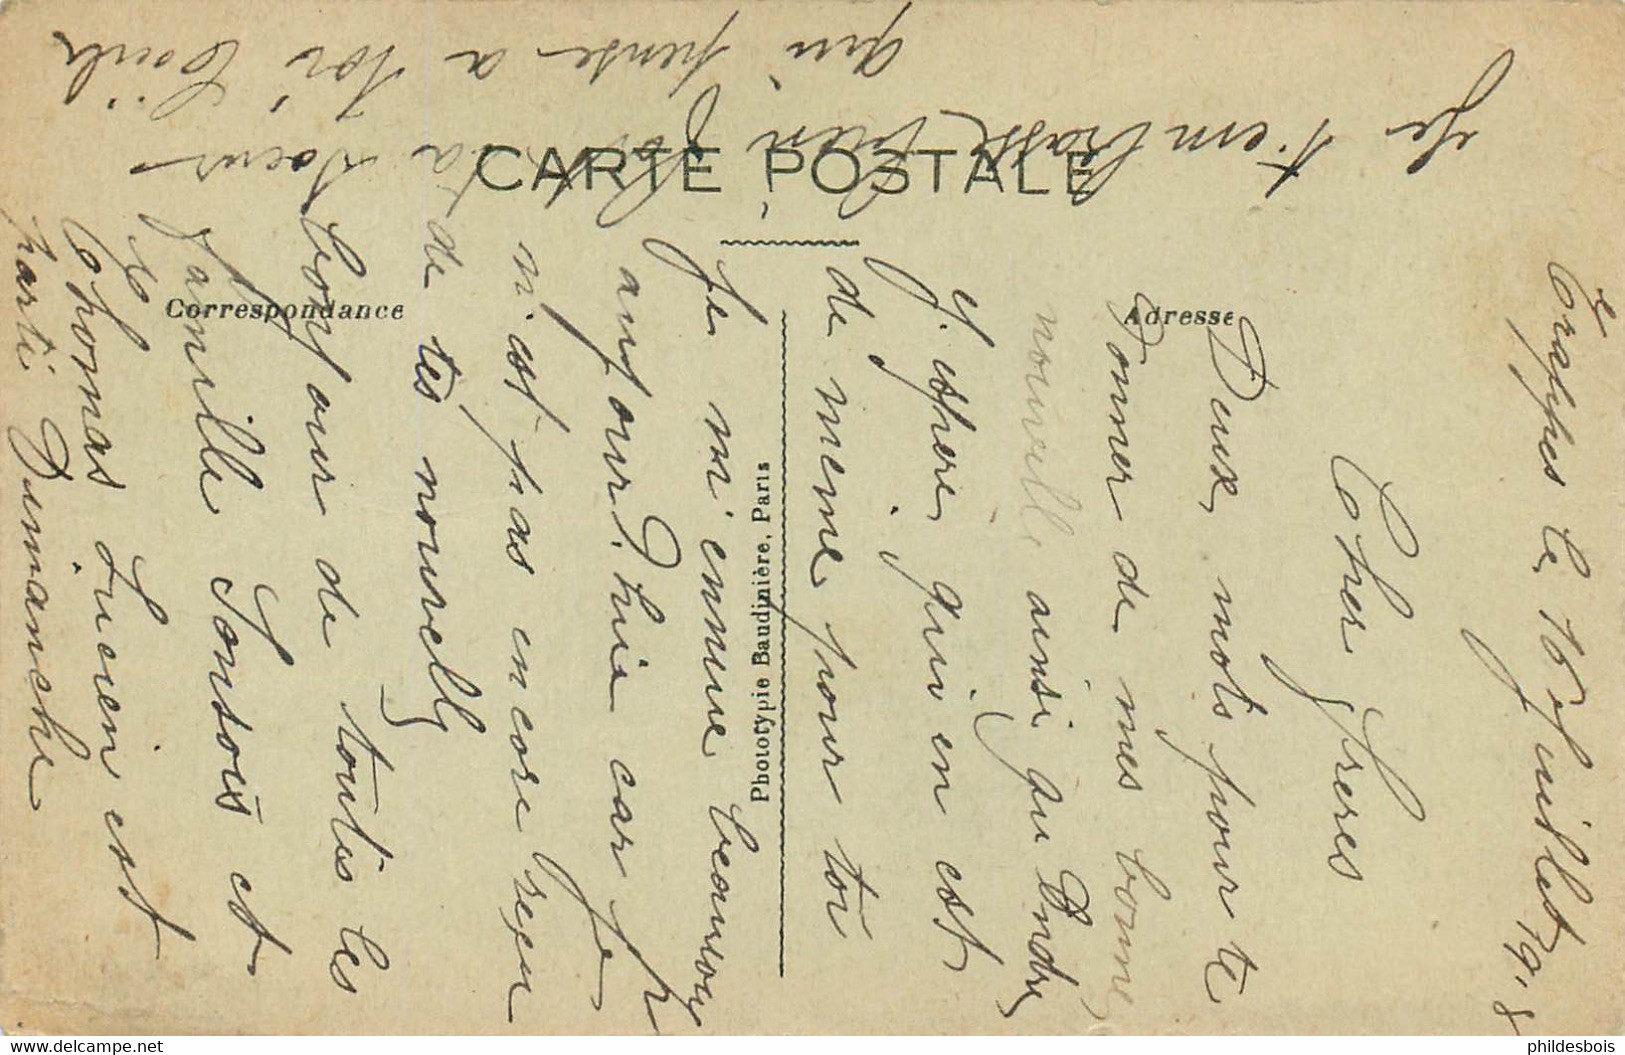 CARTE POSTALE
Correspondance
Adresse
Phototypie Baudinière, Paris
Trappes le 16 Juillet 19.8
Cher freres
Deux mots pour te
donner de mes bonne
nouvelle ainsi qu Andre
J'espere qui en est
de meme pour toi
Je m'ennuie beaucoup
aujourd'hui car je
n'est pas encore reçu
de tes nouvelle
bonjour de toutes les
famille Sonsois et
Thomas Lucien est
parti Dimanche
Je t'embrasse bien fort
ta soeur
qui pense a toi
phildesbois